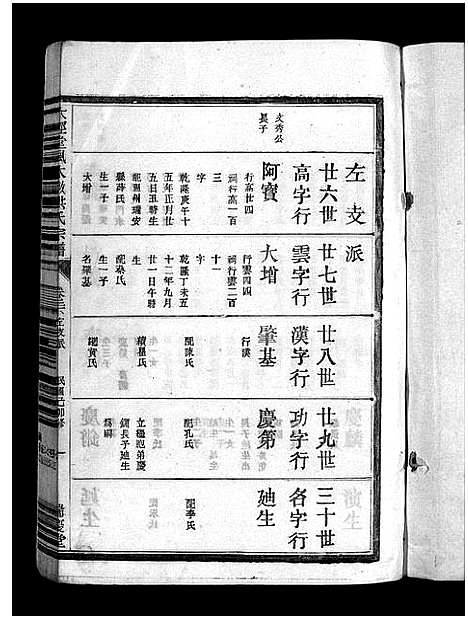 左支派
廿六世
高字行
文秀公
長子
阿寶
行高廿四
祠行高一百
三
字
乾隆庚午十
五年正月廿
五日丑時生
配溫州瑞安
縣薛氏
生一子
大增
廿七世
雲字行
大增
行雲四四
祠行雲二百
十一
字
乾隆丁未五
十二年九月
廿一日午時
生
配梁氏
生一子
名肇基
廿八世
漢字行
肇基
行漢
配陳氏
續星氏
繼黃氏
廿九世
功字行
慶第
配孔氏
立繼胞弟慶
鏞長子廸生
為嗣
三十世
名字行
廸生
配李氏
洪氏宗譜
左支派